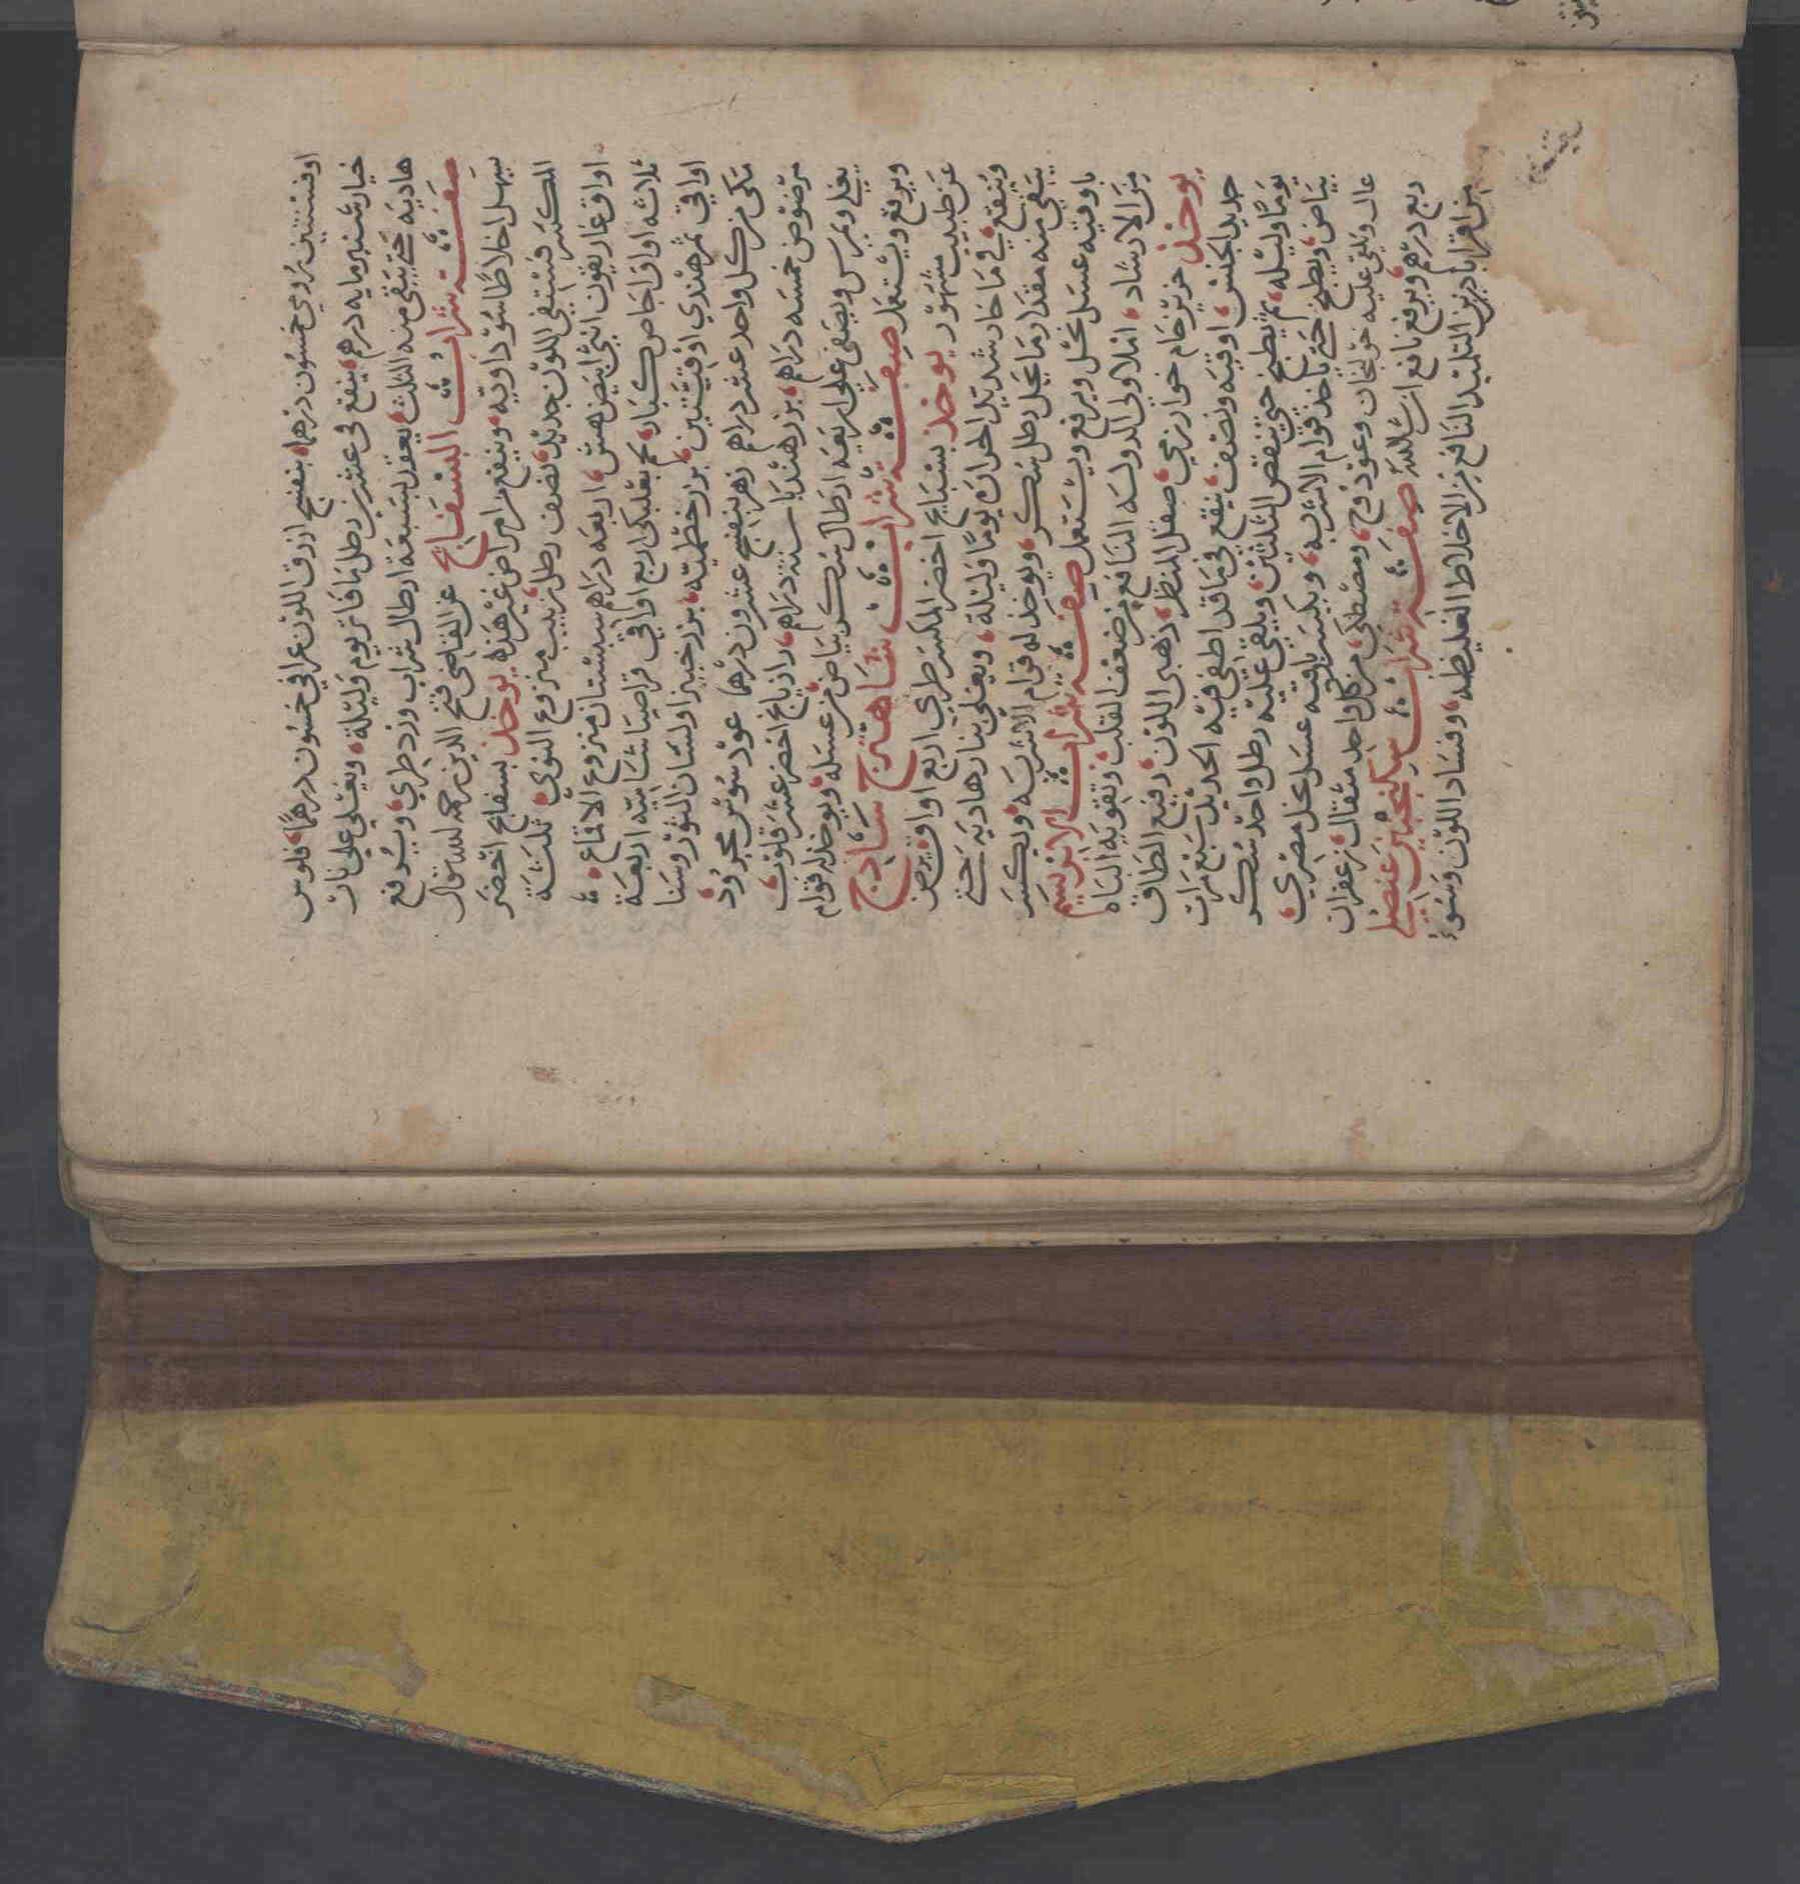 افسنتين رومي خمسون درهما بنفسج ازرق اللون عراقي خمسون درهما فلوس
خيارشنبر مايه درهم ينقع في عشرين رطل ما فاتر يوم وليلة ويغلي علي نار
هاديه حتي يبقي منه الثلث يعقد بسبعة ارطال شراب ورد طري ويرفع
صفة شراب البسفايج عن القاضي فتح الدين رحمه الله قال
يسهل اخلاطا سوداويه وينفع من امراض غير هذه يوخذ بسفايج اخضر
المكسر فستقي اللون جديد نصف رطل زبيب منزوع النوي ثلثة
اواق غاريقون انثي ابيض هش اربعه دراهم سبستان منزوع الاقماع
ثلاثه اواق اجاص كبار بعلبكي اربع اواقي قراصيا شاميه اربعة
اواقي تمرهندي اوقيتين بزر خطميه بزر خبيز ولسان الثور وسنا
مكي من كل واحد عشر دراهم زهر بنفسج عشرون درهما عود سوس مجرود
مرضوض خمسه دراهم بزر هندبا ستة دراهم رازيانج اخضر عشر قلوب
يغلي ويمرس ويصفي علي اربعه ارطال سكر بياض من عسله ويوخذ له قوام
ويرفع ويستعمل صفة شراب شاهترج ساذج
عن طبيب مشهور يوخذ بسبايج اخضر المكسر طري اربع اواق يرض
وينقع في ما حار شديد الحراره يوما وليلة ويغلي بنار هاديه حتي
يبقي منه مقدار ما يحل رطل سكر ويوخذ له قوام الاشربه ويكسر
باوقيه عسل نحل ويرفع ويستعمل صفة شراب الابريسم
من الارشاد املا ولي الدوله النافع من ضعف القلب وتقويه الباه
يوخذ حرير خام خوارزمي صقل المنظر ذهبي اللون رفيع الطاق
جديد الجنس اوقيه ونصف ينقع في ما قد اطفي فيه الحديد سبع مرات
يوما وليله ثم يطبخ حتي ينقص الثلثين ويلقي عليه رطل واحد سكر
بياض ويطبخ حتي ياخذ قوام الاشربه ويكسر باوقيه عسل نحل مصري
عال ويلقي عليه خولنجان وعود قرح ومصطكي من كل واحد مثقال زعفران
ربع درهم ويرفع نافع ان شا الله صفة شراب سكنجبين عنصلي
من اقراباذين ابن التلميذ النافع من الاخلاط الغليظه وفساد اللون وسوء